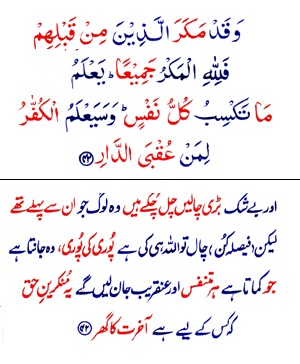 وَقَدْ مَكَرَ الَّذِیْنَ مِنْ قَبْلِهِمْ
فَلِلّٰهِ الْمَكْرُ جَمِیْعًا ؕ یَعْلَمُ
مَا تَكْسِبُ كُلُّ نَفْسٍ ؕ وَسَیَعْلَمُ الْكُفّٰرُ
لِمَنْ عُقْبَی الدَّارِ ﴿۴۲﴾
اور بے شک بڑی چالیں چل چکے ہیں وہ لوگ جو ان سے پہلے تھے
لیکن (فیصلہ کُن) چال تو اللہ ہی کی ہے پُوری کی پُوری، وہ جانتا ہے
جو کماتا ہے ہر متنفس اور عنقریب جان لیں گے یہ مُنکرینِ حق
کہ کس کے لیے ہے آخرت کا گھر ﴿۴۲﴾